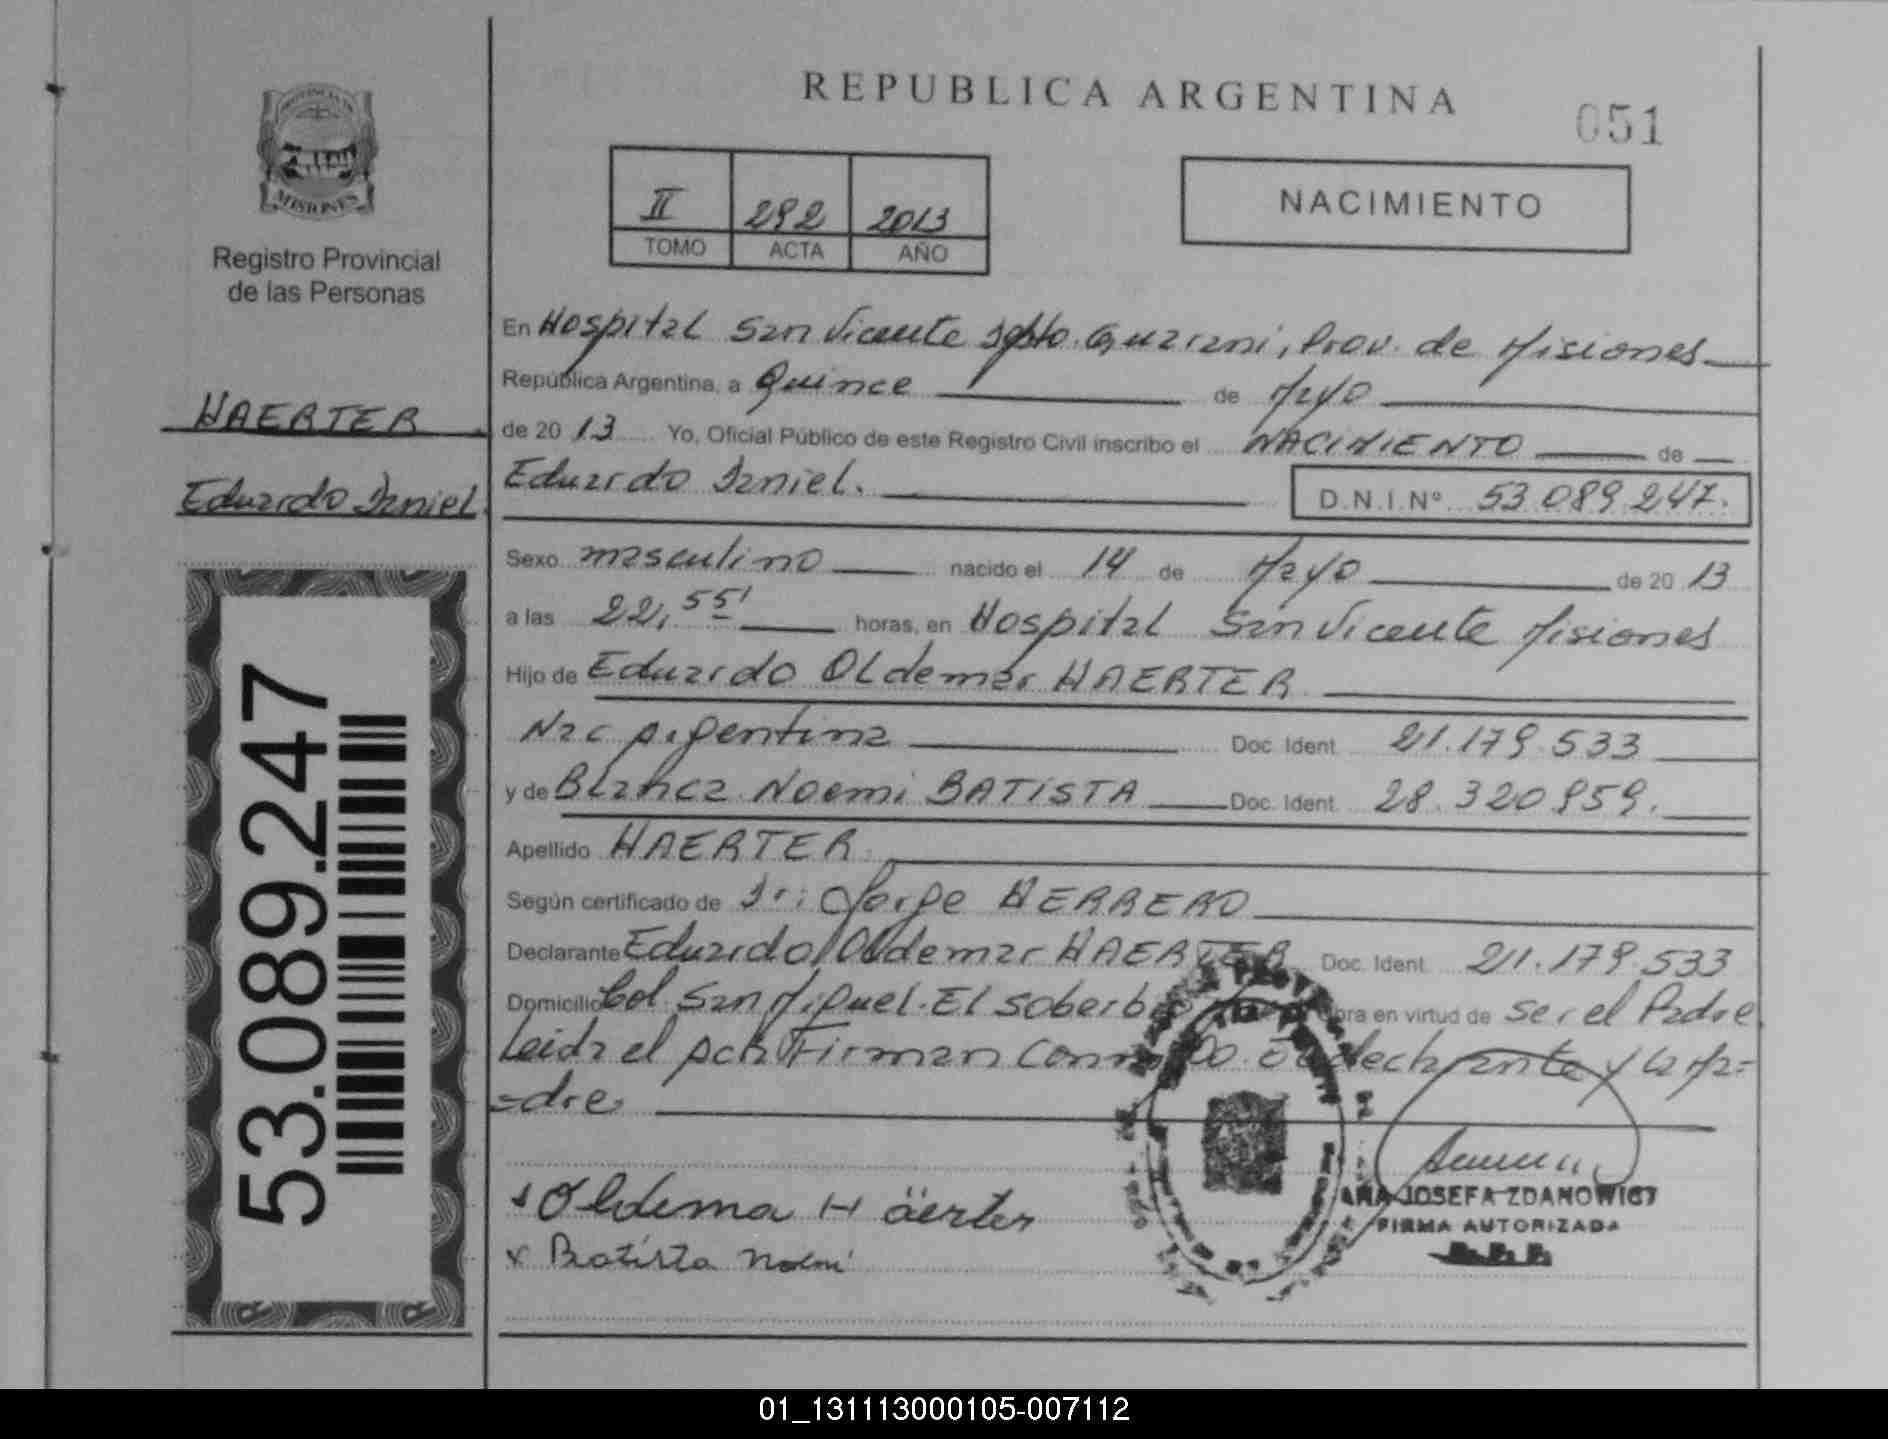 REPUBLICA ARGENTINA
051
PROVINCIA DE
MISIONES
Registro Provincial
de las Personas
II 292 2013
TOMO ACTA AÑO
NACIMIENTO
HAERTER
Eduardo Daniel
53.089.247
En Hospital San Vicente Dpto. Guarani, Prov. de Misiones
República Argentina, a Quince de Mayo
de 20 13 Yo, Oficial Público de este Registro Civil inscribo el NACIMIENTO de
Eduardo Daniel. D.N.I.Nº 53.089.247.
Sexo masculino nacido el 14 de Mayo de 20 13
a las 22,55' horas, en Hospital San Vicente Misiones
Hijo de Eduardo Oldemar HAERTER
Nac Argentina Doc. Ident. 21.179.533
y de Blanca Noemi BATISTA Doc. Ident. 28.320.959.
Apellido HAERTER
Según certificado de Dr: Jorge HERRERO
Declarante Eduardo Oldemar HAERTER Doc. Ident. 21.179.533
Domicilio Col. San Miguel. El Soberbio Obra en virtud de ser el Padre
Leida el acta Firman Conmigo el declarante y la Ma=
=dre
x Oldema Häerter
x Batista Noemi
ANA JOSEFA ZDANOWICZ
FIRMA AUTORIZADA
R. P. P.
01_131113000105-007112